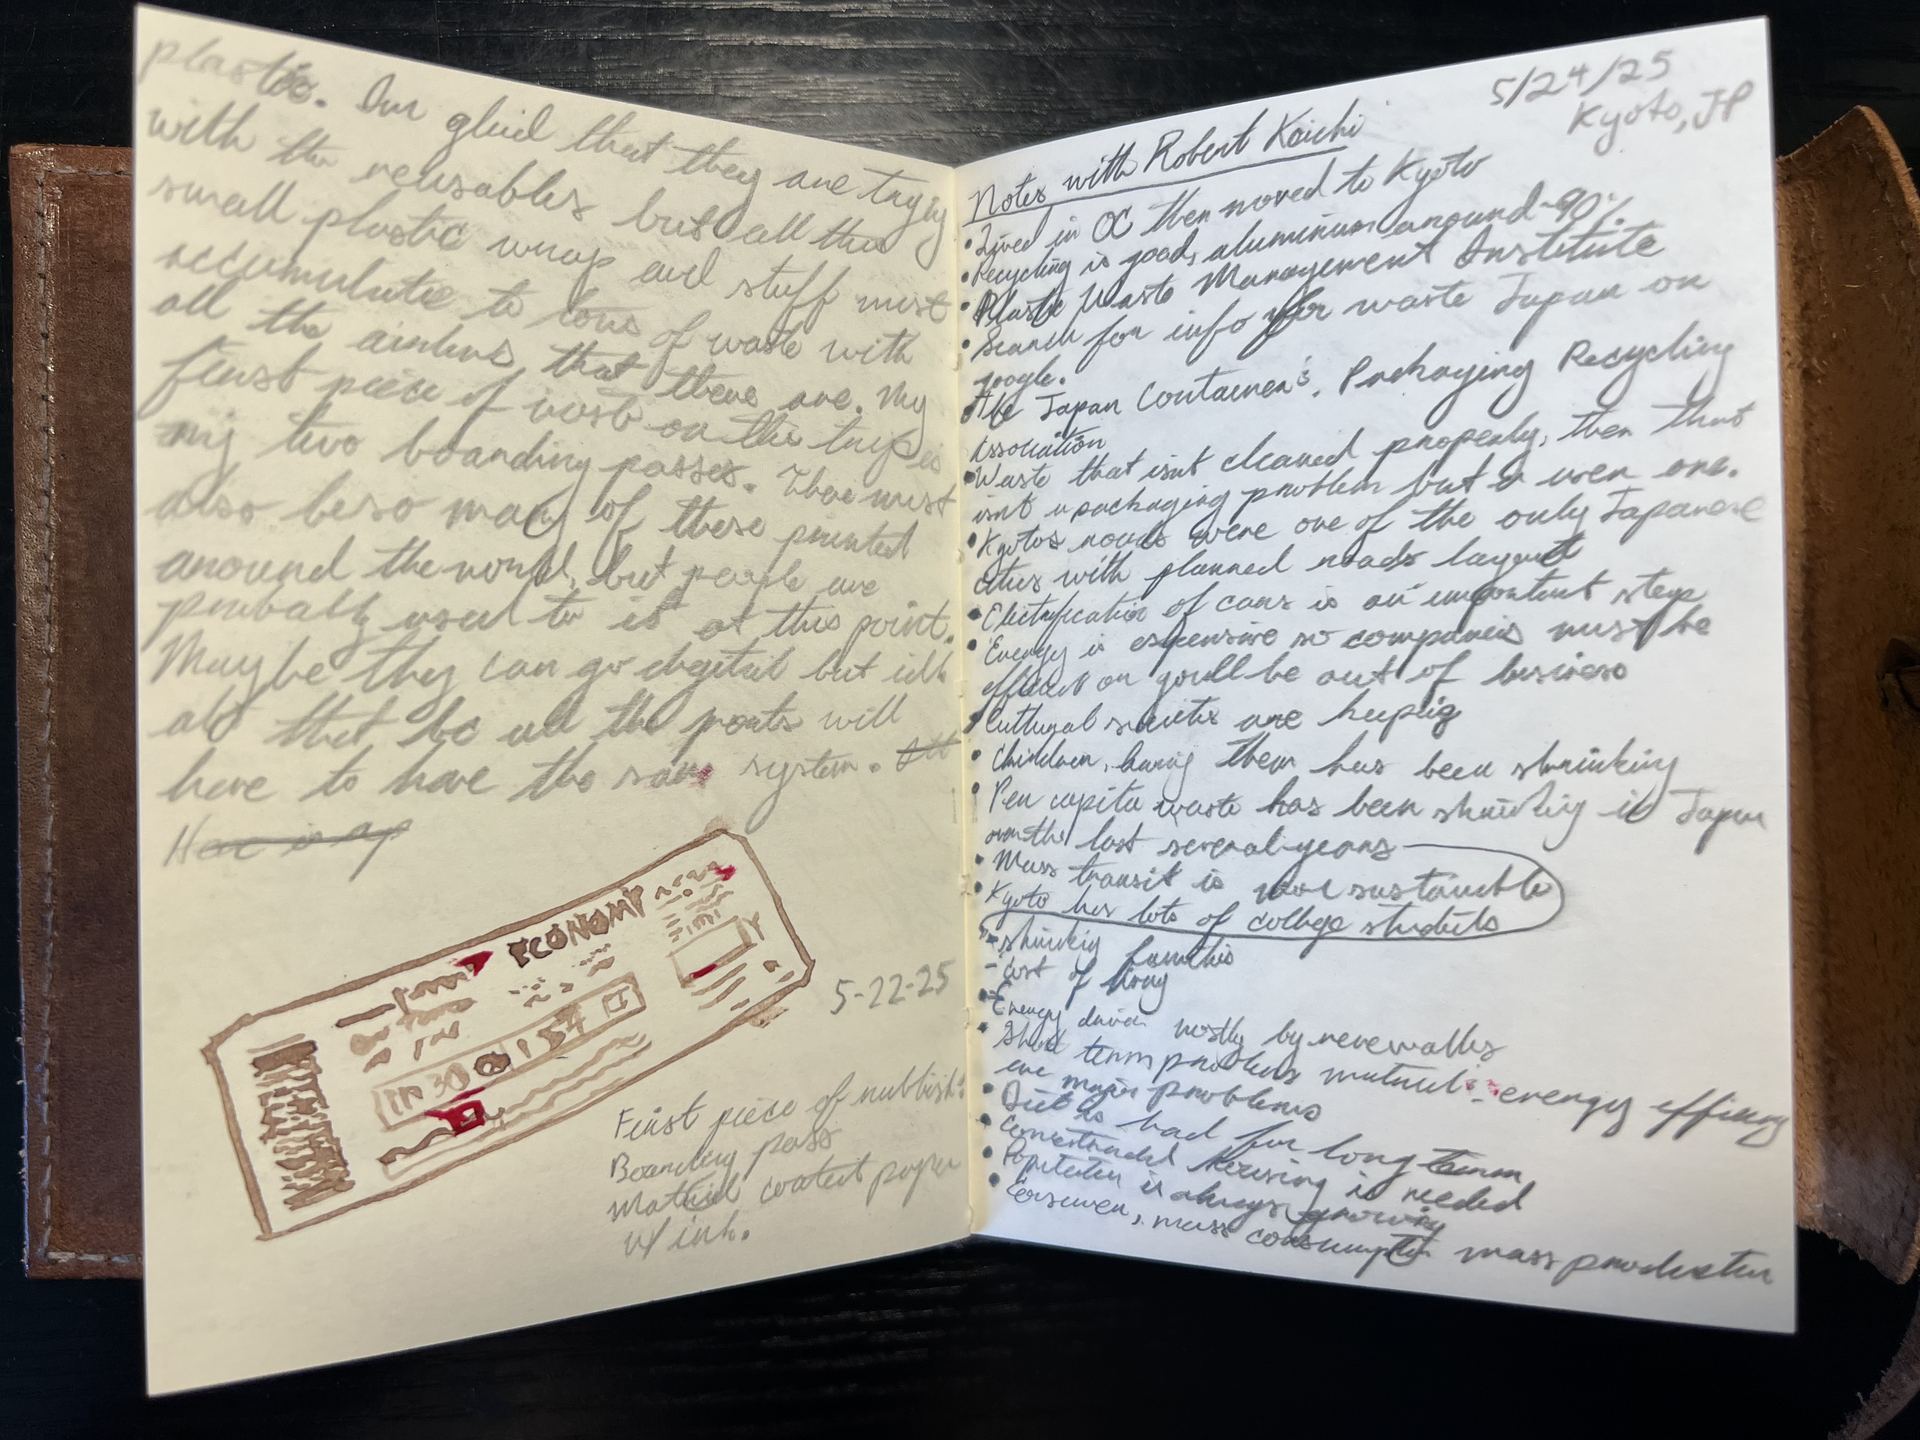 plastic. Im glad that they are trying
with the reusables but all this
small plastic wrap and stuff must
accumulate to tons of waste with
all the airlines that there are. My
first piece of waste on this trip is
my two boarding passes. There must
also be so many of these printed
around the world, but people are
probably used to it at this point.
Maybe they can go digital but idk
abt that bc all the ports will
have to have the same system.
Here is a
ECONOMY
5-22-25
First piece of rubbish:
Boarding pass
Material coated paper
w/ ink.
5/24/25
Kyoto, JP
Notes with Robert Koichi
• Lived in OC then moved to Kyoto
• Recycling is good, aluminum around 90%
• Plastic Waste Management Institute
• Search for info for waste Japan on
google.
• The Japan Container's. Packaging Recycling
Association
• Waste that isnt cleaned properly, then that
isnt a packaging problem but a user one.
• Kyotos roads were one of the only Japanese
cities with planned roads layout
• Electrification of cars is an important step
• Energy is expensive so companies must be
efficient or youll be out of business
• Cultural societies are
• Children, having them has been shrinking
• Per capita waste has been shrinking in Japan
over the last several years
• Mass transit is most sustainable
• Kyoto has lots of college students
- shrinking families
- Cost of living
• Energy driven mostly by renewables
• Short term problems mutual: energy efficiency
are major problems
• But is bad for long term
• Constructed housing is needed
• Population is always growing
• mass consumption mass production